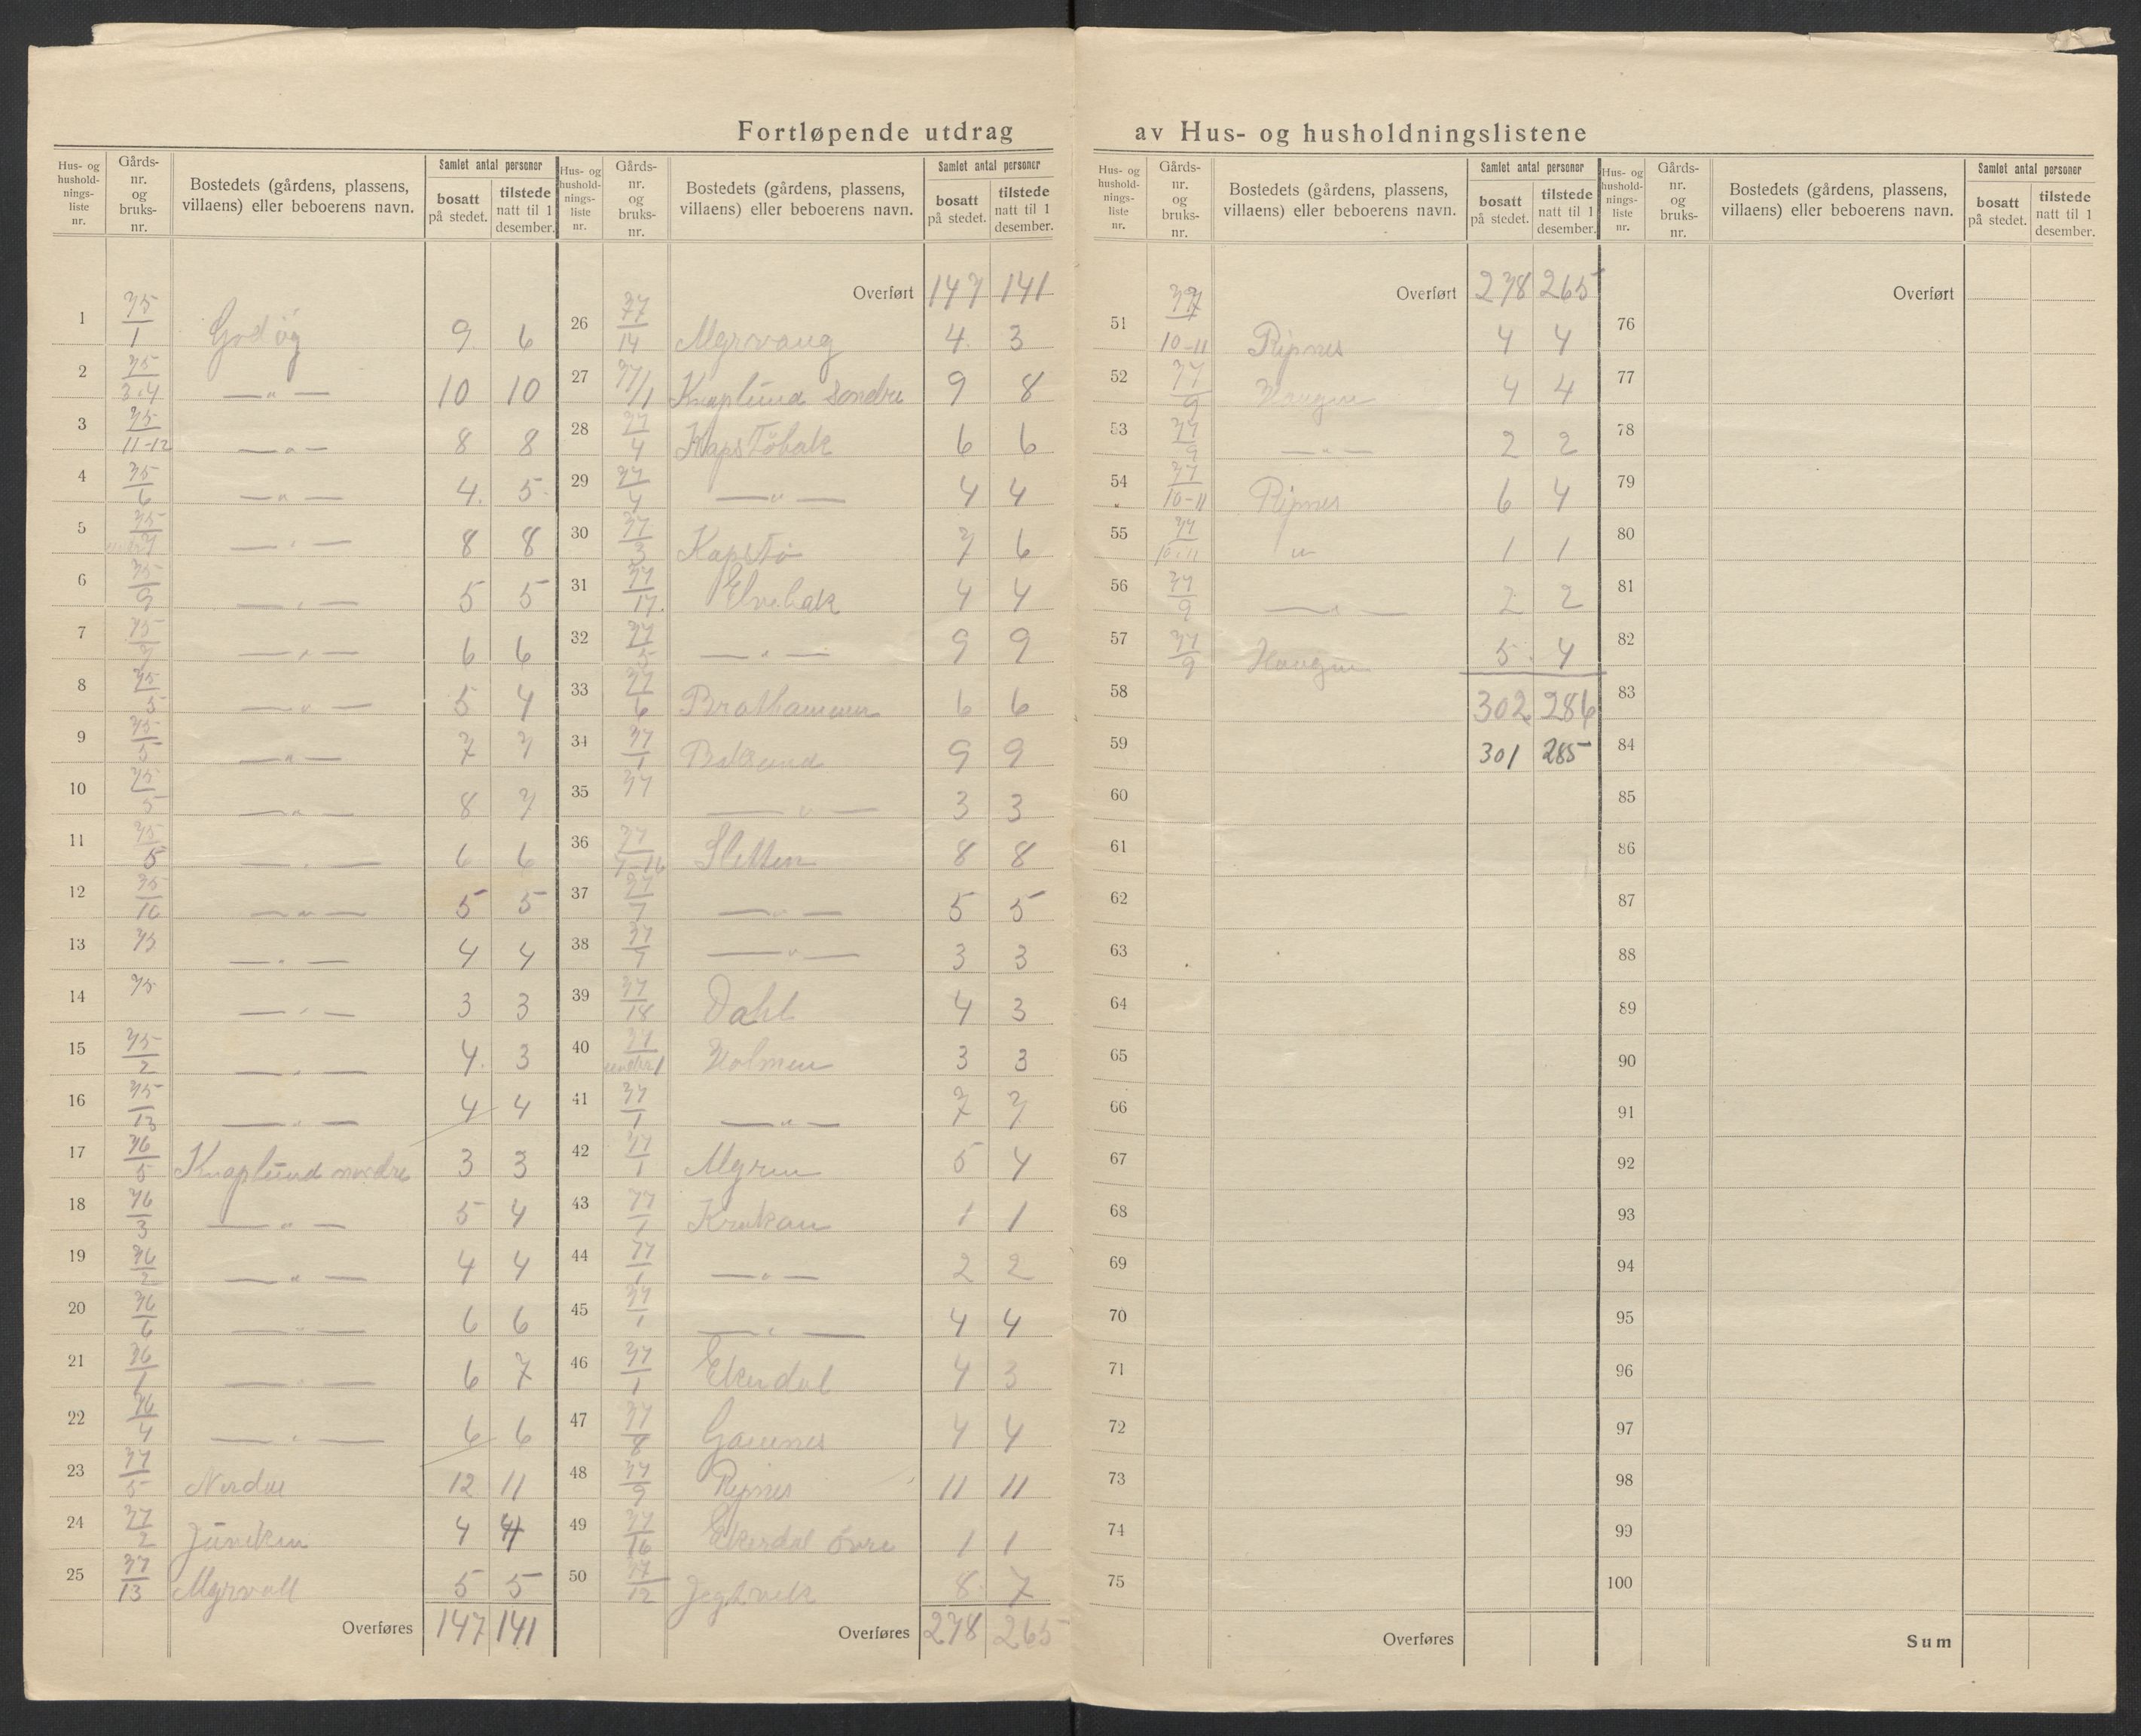 Fortløpende utdrag av Hus- og husholdningslistene
Hus- og hushold-nings-liste nr. Gårds-nr. og bruks-nr. Bostedets (gårdens, plassens, villaens) eller beboerens navn. Samlet antal personer bosatt på stedet. tilstede natt til 1 desember.
1 75/1 Godøy 9 6
2 75/3.4 —"— 10 10
3 75/11-12 —"— 8 8
4 75/6 —"— 4 5
5 75/ —"— 8 8
6 75/9 —"— 5 5
7 75/ —"— 6 6
8 75/5 —"— 5 4
9 75/5 —"— 7 7
10 75/5 —"— 8 7
11 75/5 —"— 6 6
12 75/10 —"— 5 5
13 75 —"— 4 4
14 75 —"— 3 3
15 75/2 —"— 4 3
16 75/13 —"— 4 4
17 76/5 Knaplund nordre 3 3
18 76/3 —"— 5 4
19 76/2 —"— 4 4
20 76/6 —"— 6 6
21 76/1 —"— 6 7
22 76/4 —"— 6 6
23 77/5 12 11
24 77/2 4 4
25 77/13 Myrvoll 5 5
Overføres 147 141
Hus- og hushold-nings-liste nr. Gårds-nr. og bruks-nr. Bostedets (gårdens, plassens, villaens) eller beboerens navn. Samlet antal personer bosatt på stedet. tilstede natt til 1 desember.
Overført 147 141
26 77/14 Myrvang 4 3
27 77/1 Knaplund Søndre 9 8
28 77/4 Kapstøbak 6 6
29 77/4 —"— 4 4
30 77/3 Kapstø 7 6
31 77/17 Elvebak 4 4
32 77/5 —"— 9 9
33 77/6 Brathammer 6 6
34 77/1 9 9
35 77 —"— 3 3
36 77/7-16 Sletten 8 8
37 77/7 —"— 5 5
38 77/7 —"— 3 3
39 77/18 Dahl 4 3
40 77/under 1 Holmen 3 3
41 77/1 —"— 7 7
42 77/1 Myren 5 4
43 77/1 Krokan 1 1
44 77/1 —"— 2 2
45 77/1 —"— 4 4
46 77/1 Ekerdal 4 3
47 77/8 4 4
48 77/9 Ripnes 11 11
49 77/16 Ekerdal Øvre 1 1
50 77/12 Jegtvik 8 7
Overføres 278 265
Hus- og hushold-nings-liste nr. Gårds-nr. og bruks-nr. Bostedets (gårdens, plassens, villaens) eller beboerens navn. Samlet antal personer bosatt på stedet. tilstede natt til 1 desember.
Overført 278 265
51 77/10-11 Ripnes 4 4
52 77/9 Haugen 4 4
53 77/9 —"— 2 2
54 77/10-11 Ripnes 6 4
55 77/10.11 " 1 1
56 77/9 —"— 2 2
57 77/9 Haugen 5 4
58 302 286
59 301 285
60
61
62
63
64
65
66
67
68
69
70
71
72
73
74
75
Overføres
Hus- og hushold-nings-liste nr. Gårds-nr. og bruks-nr. Bostedets (gårdens, plassens, villaens) eller beboerens navn. Samlet antal personer bosatt på stedet. tilstede natt til 1 desember.
Overført
76
77
78
79
80
81
82
83
84
85
86
87
88
89
90
91
92
93
94
95
96
97
98
99
100
Sum